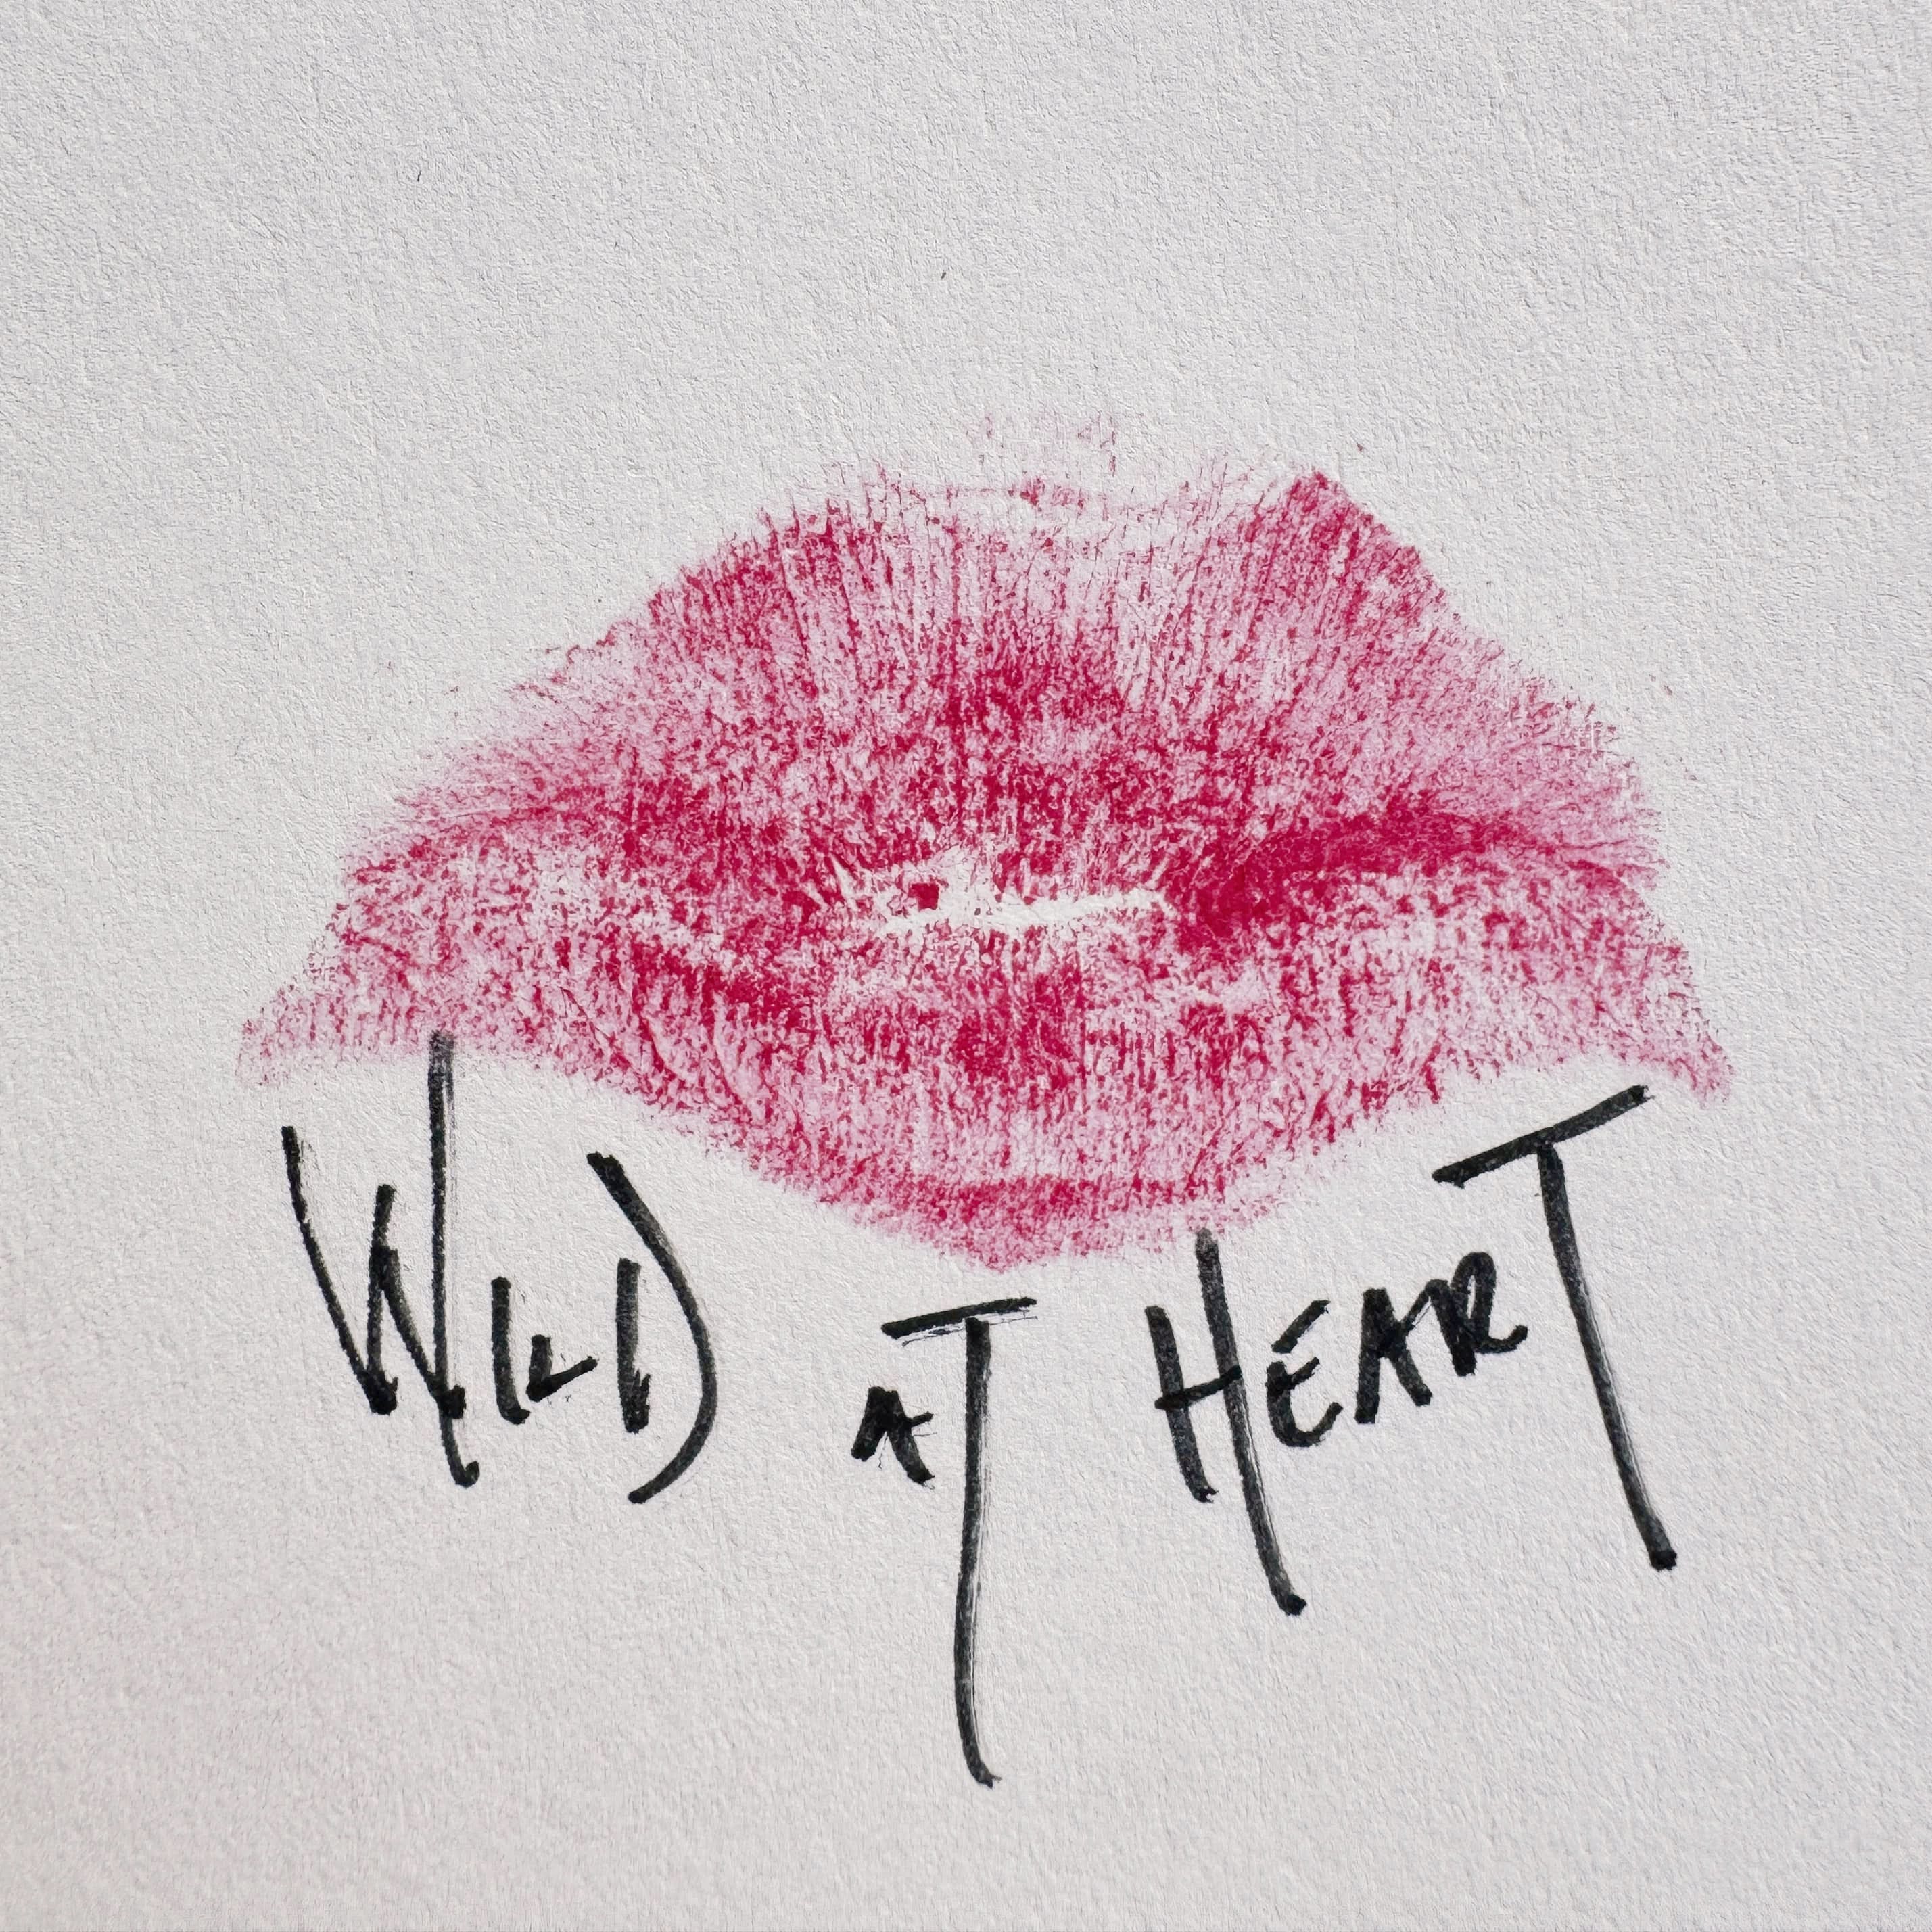 WILD AT HEART